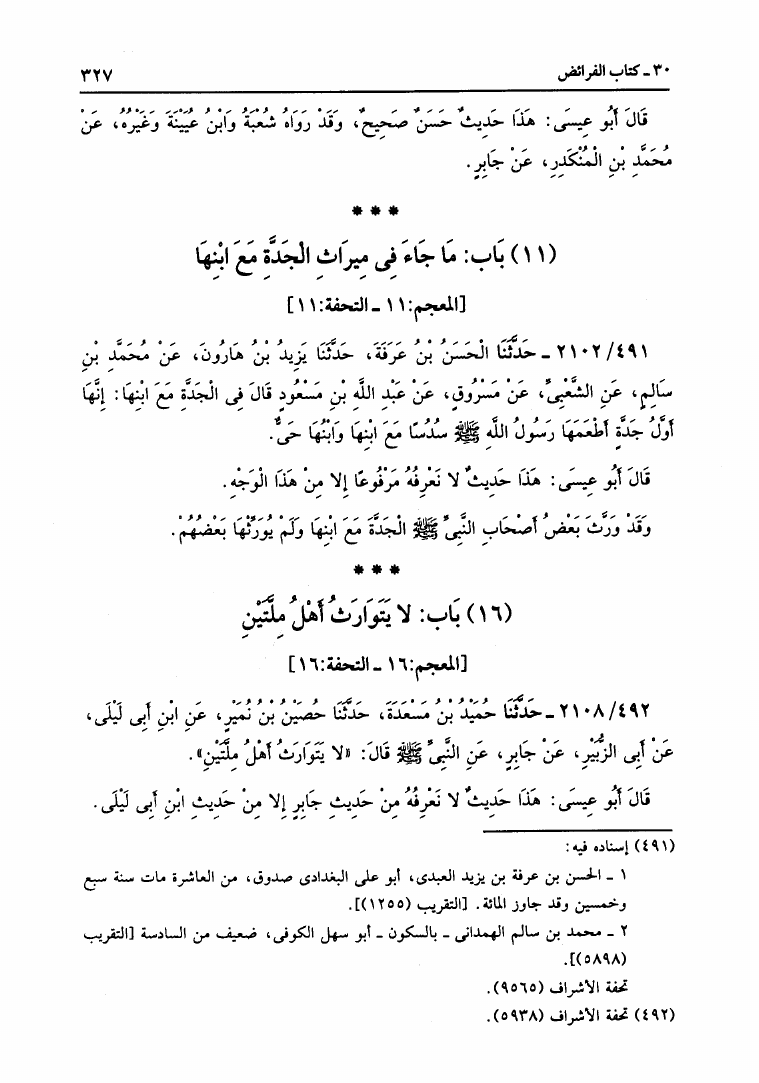 ٣٠ ـ كتاب الفرائض ٣٢٧
قَالَ أَبُو عِيسَى: هَذَا حَدِيثٌ حَسَنٌ صَحِيحٌ، وَقَدْ رَوَاهُ شُعْبَةُ وَابْنُ عُيَيْنَةَ وَغَيْرُهُ، عَنْ
مُحَمَّدِ بْنِ الْمُنْكَدِرِ، عَنْ جَابِرٍ.
* * *
(١١) بَاب: مَا جَاءَ فِى مِيرَاثِ الْجَدَّةِ مَعَ ابْنِهَا
[المعجم:١١ ـ التحفة:١١]
٢١٠٢/٤٩١ ـ حَدَّثَنَا الْحَسَنُ بْنُ عَرَفَةَ، حَدَّثَنَا يَزِيدُ بْنُ هَارُونَ، عَنْ مُحَمَّدِ بْنِ
سَالِمٍ، عَنِ الشَّعْبِىِّ، عَنْ مَسْرُوقٍ، عَنْ عَبْدِ اللَّهِ بْنِ مَسْعُودٍ قَالَ فِى الْجَدَّةِ مَعَ ابْنِهَا: إِنَّهَا
أَوَّلُ جَدَّةٍ أَطْعَمَهَا رَسُولُ اللَّهِ ﷺ سُدُسًا مَعَ ابْنِهَا وَابْنُهَا حَىٌّ.
قَالَ أَبُو عِيسَى: هَذَا حَدِيثٌ لا نَعْرِفُهُ مَرْفُوعًا إِلا مِنْ هَذَا الْوَجْهِ.
وَقَدْ وَرَّثَ بَعْضُ أَصْحَابِ النَّبِىِّ ﷺ الْجَدَّةَ مَعَ ابْنِهَا وَلَمْ يُوَرِّثْهَا بَعْضُهُمْ.
* * *
(١٦) بَاب: لا يَتَوَارَثُ أَهْلُ مِلَّتَيْنِ
[المعجم:١٦ ـ التحفة:١٦]
٢١٠٨/٤٩٢ ـ حَدَّثَنَا حُمَيْدُ بْنُ مَسْعَدَةَ، حَدَّثَنَا حُصَيْنُ بْنُ نُمَيْرٍ، عَنِ ابْنِ أَبِى لَيْلَى،
عَنْ أَبِى الزُّبَيْرِ، عَنْ جَابِرٍ، عَنِ النَّبِىِّ ﷺ قَالَ: «لا يَتَوَارَثُ أَهْلُ مِلَّتَيْنِ».
قَالَ أَبُو عِيسَى: هَذَا حَدِيثٌ لا نَعْرِفُهُ مِنْ حَدِيثِ جَابِرٍ إِلا مِنْ حَدِيثِ ابْنِ أَبِى لَيْلَى.
(٤٩١) إسناده فيه:
١ ـ الحسن بن عرفة بن يزيد العبدى، أبو على البغدادى صدوق، من العاشرة مات سنة سبع
وخمسين وقد جاوز المائة. [التقريب (١٢٥٥)].
٢ ـ محمد بن سالم الهمدانى ـ بالسكون ـ أبو سهل الكوفى، ضعيف من السادسة [التقريب
(٥٨٩٨)].
تحفة الأشراف (٩٥٦٥).
(٤٩٢) تحفة الأشراف (٥٩٣٨).